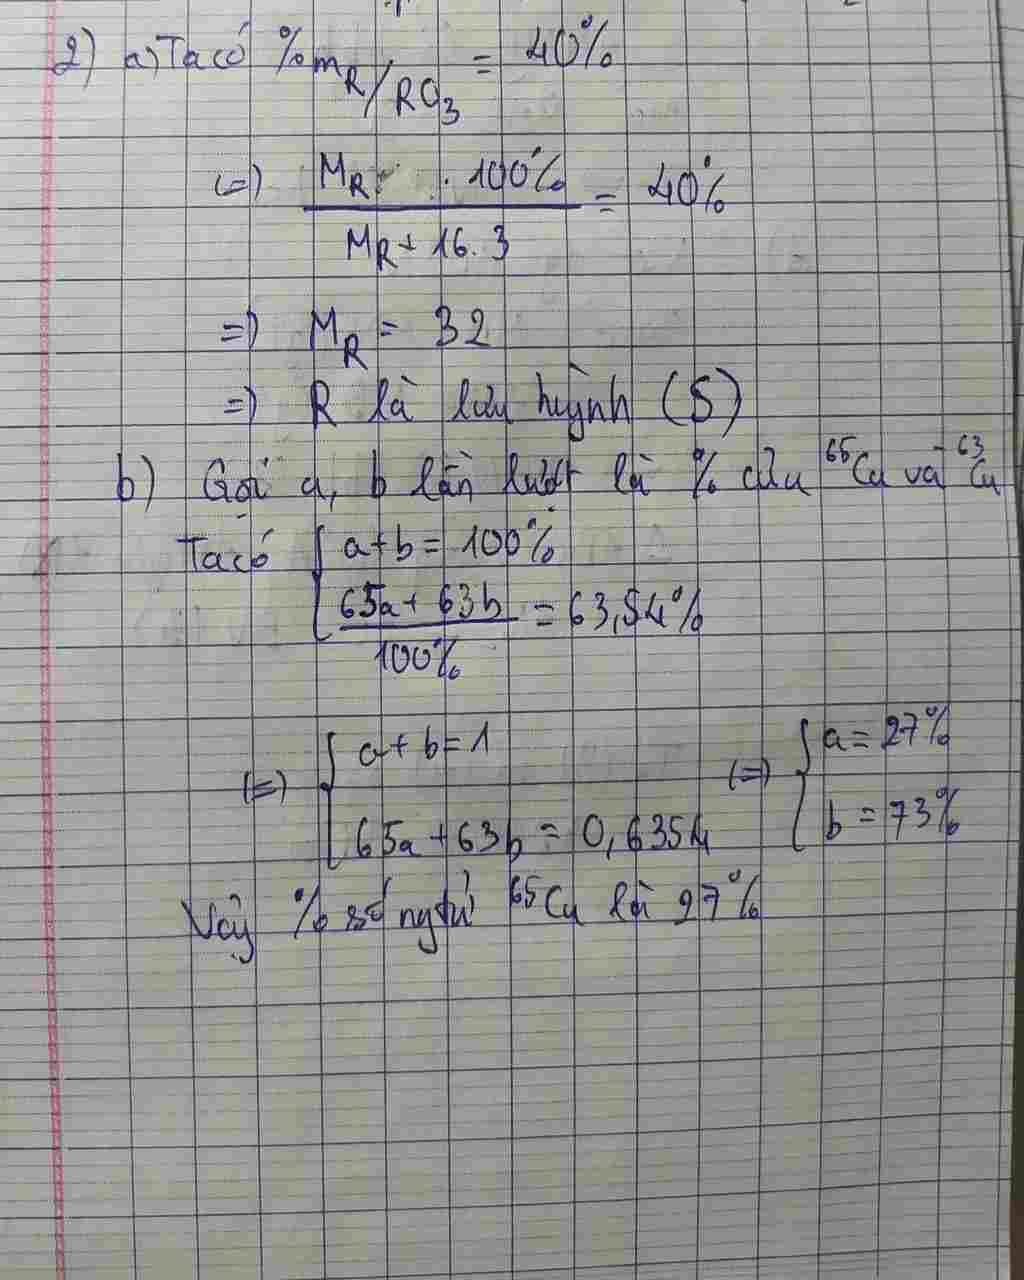 2) a) Ta có %mR/RO₃ = 40%
(=) MR . 100% / MR + 16.3 = 40%
=) MR = 32
=) R là lưu huỳnh (S)
b) Gọi a, b lần lượt là % của ⁶⁵Cu và ⁶³Cu
Ta có { a + b = 100%
65a + 63b / 100% = 63,54%
(=) { a + b = 1
65a + 63b = 0,6354
(=) { a = 27%
b = 73%
Vậy % số ngtử ⁶⁵Cu là 27%